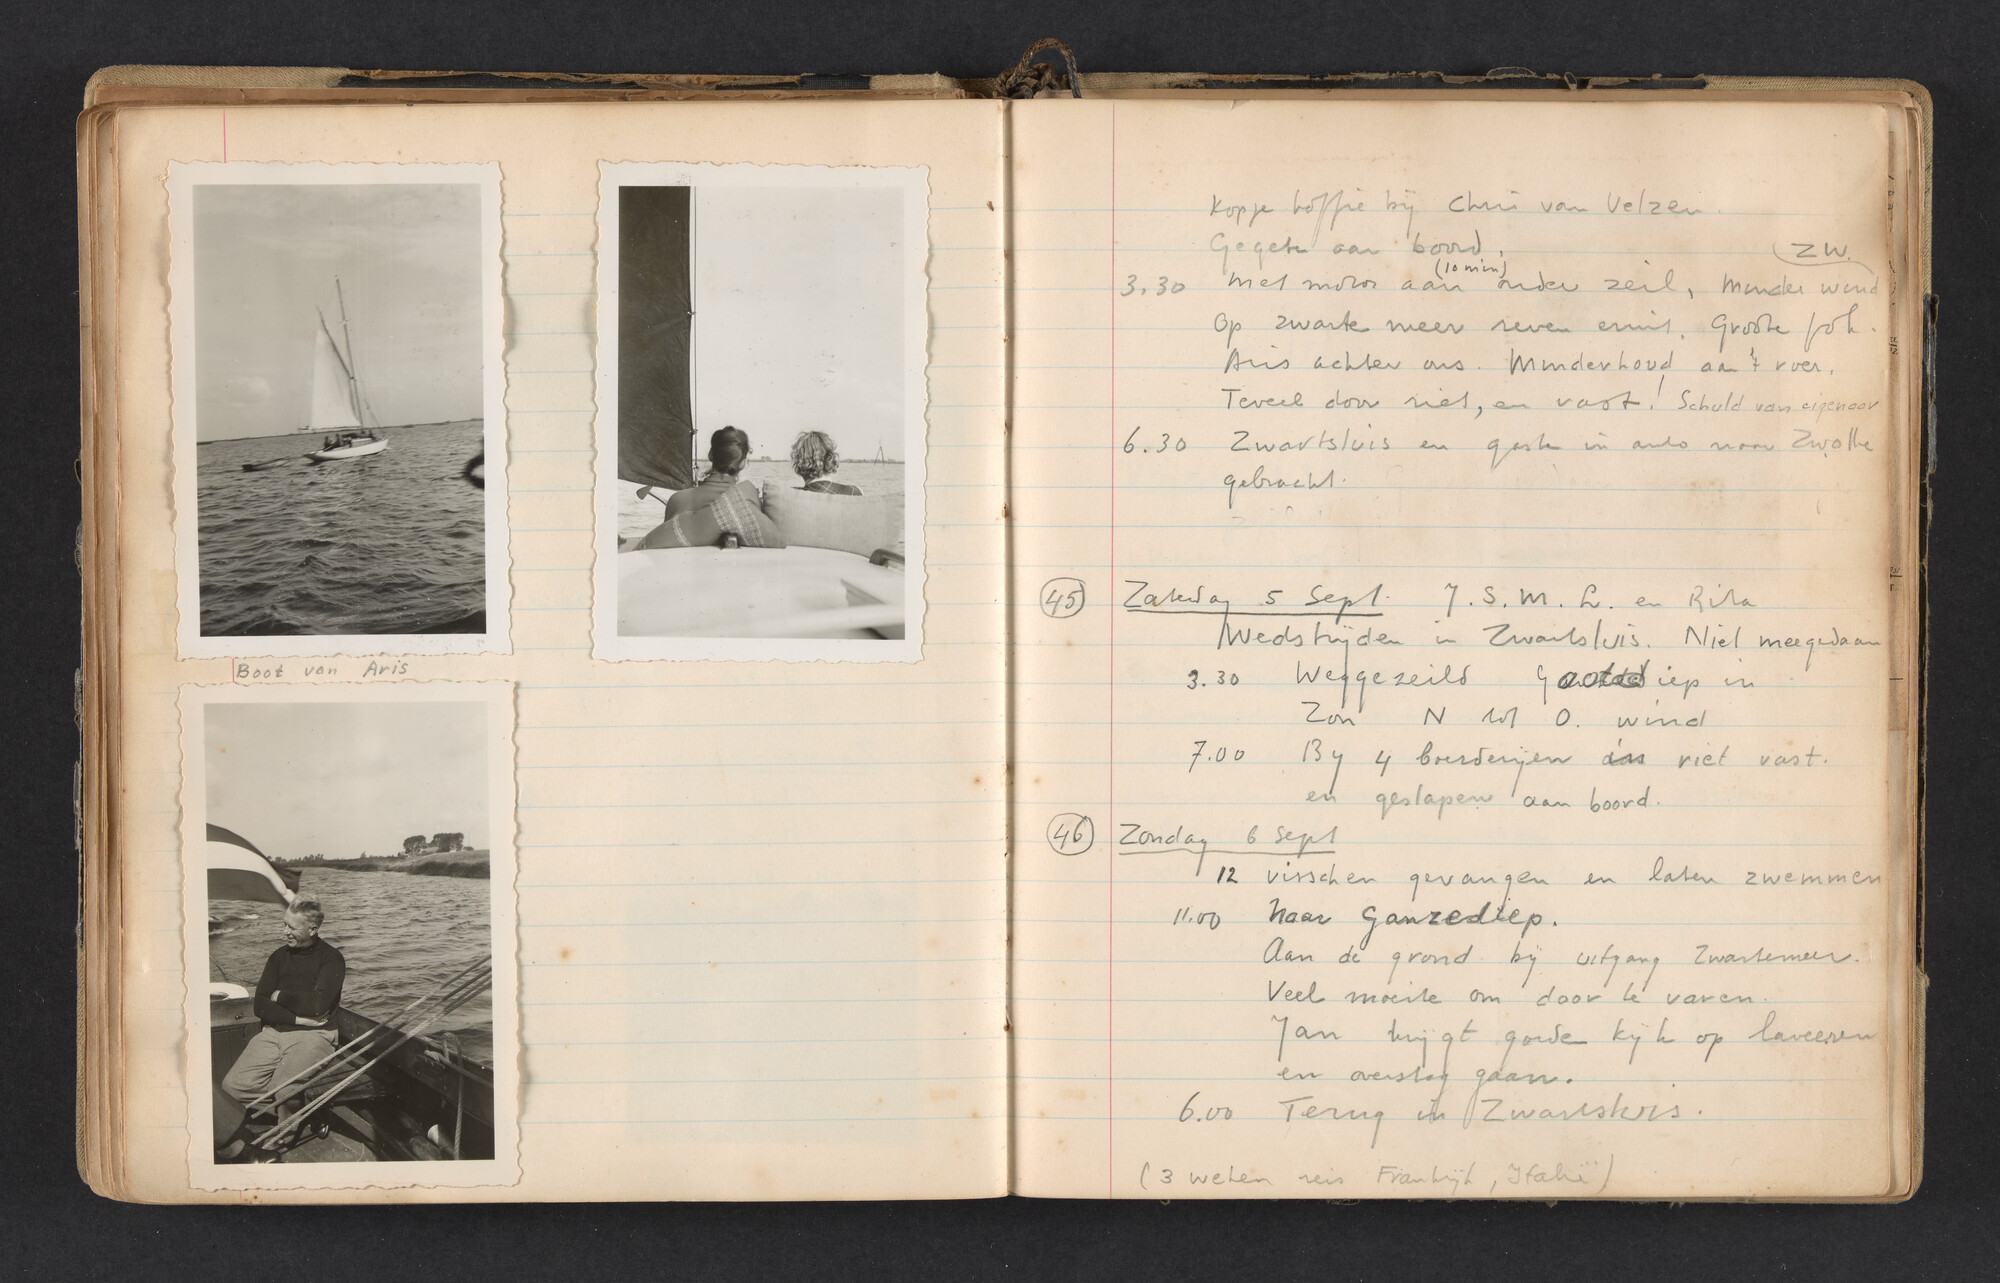 Boot van Aris
Kopje koffie bij Chris van Velzen.
Gegeten aan boord.
ZW.
3.30 Met motor aan (10 min) onder zeil, Minder wind
Op zwarte meer reven eruit. Groote fok.
Aris achter ons. Minderhoud aan 't roer.
Teveel door riet, en vast! Schuld van eigenaar
6.30 Zwartsluis en gasten in auto naar Zwolle
gebracht.
45 Zaterdag 5 Sept. J. S. M. L. en Rita
Wedstrijden in Zwartsluis. Niet meegedaan
3.30 Weggezeild diep in
Zon N tot O. wind
7.00 By 4 boerderijen riet vast.
en geslapen aan boord.
46 Zondag 6 Sept
12 visschen gevangen en laten zwemmen
11.00 Naar Ganzediep.
Aan de grond bij uitgang Zwartemeer.
Veel moeite om door te varen.
Jan krijgt goede kijk op laveeren
en overstag gaan.
6.00 Terug in Zwartsluis.
(3 weken reis Frankrijk, Italië)